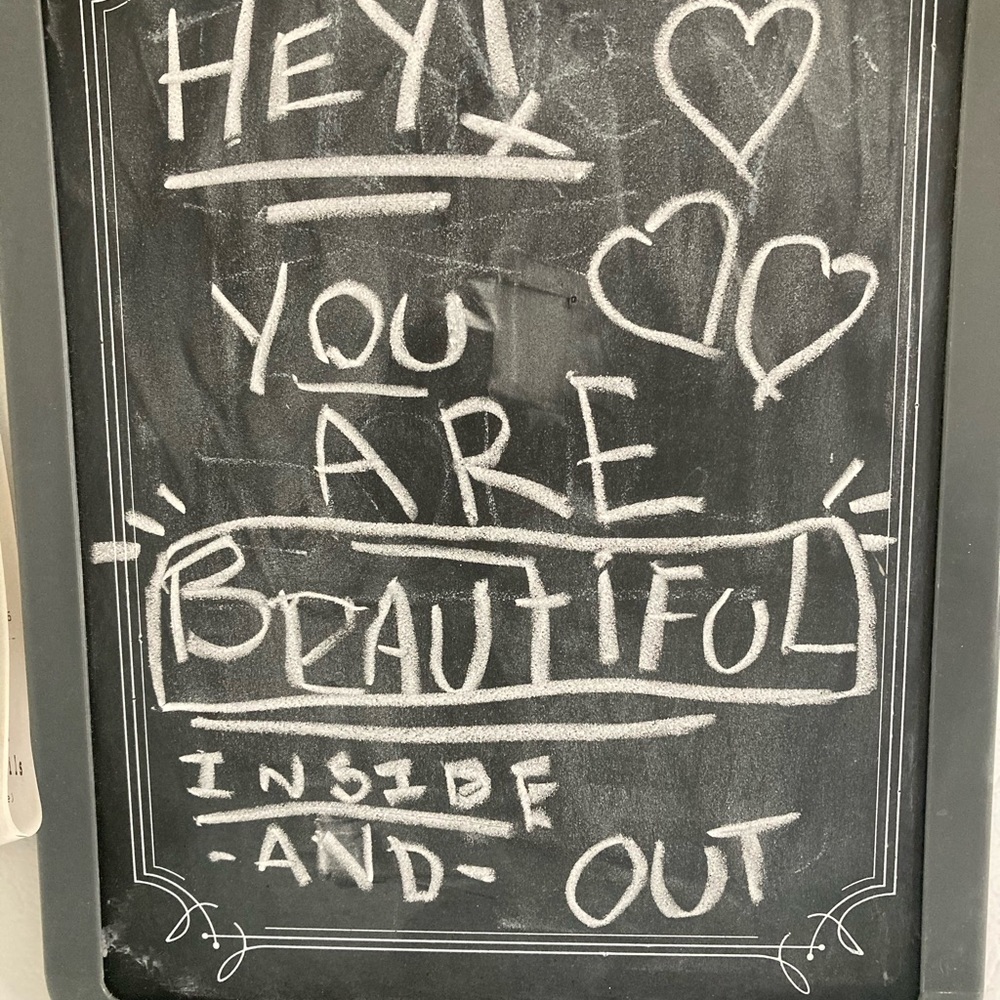 HEY!
YOU
ARE
BEAUTIFUL
INSIDE
-AND- OUT
lls